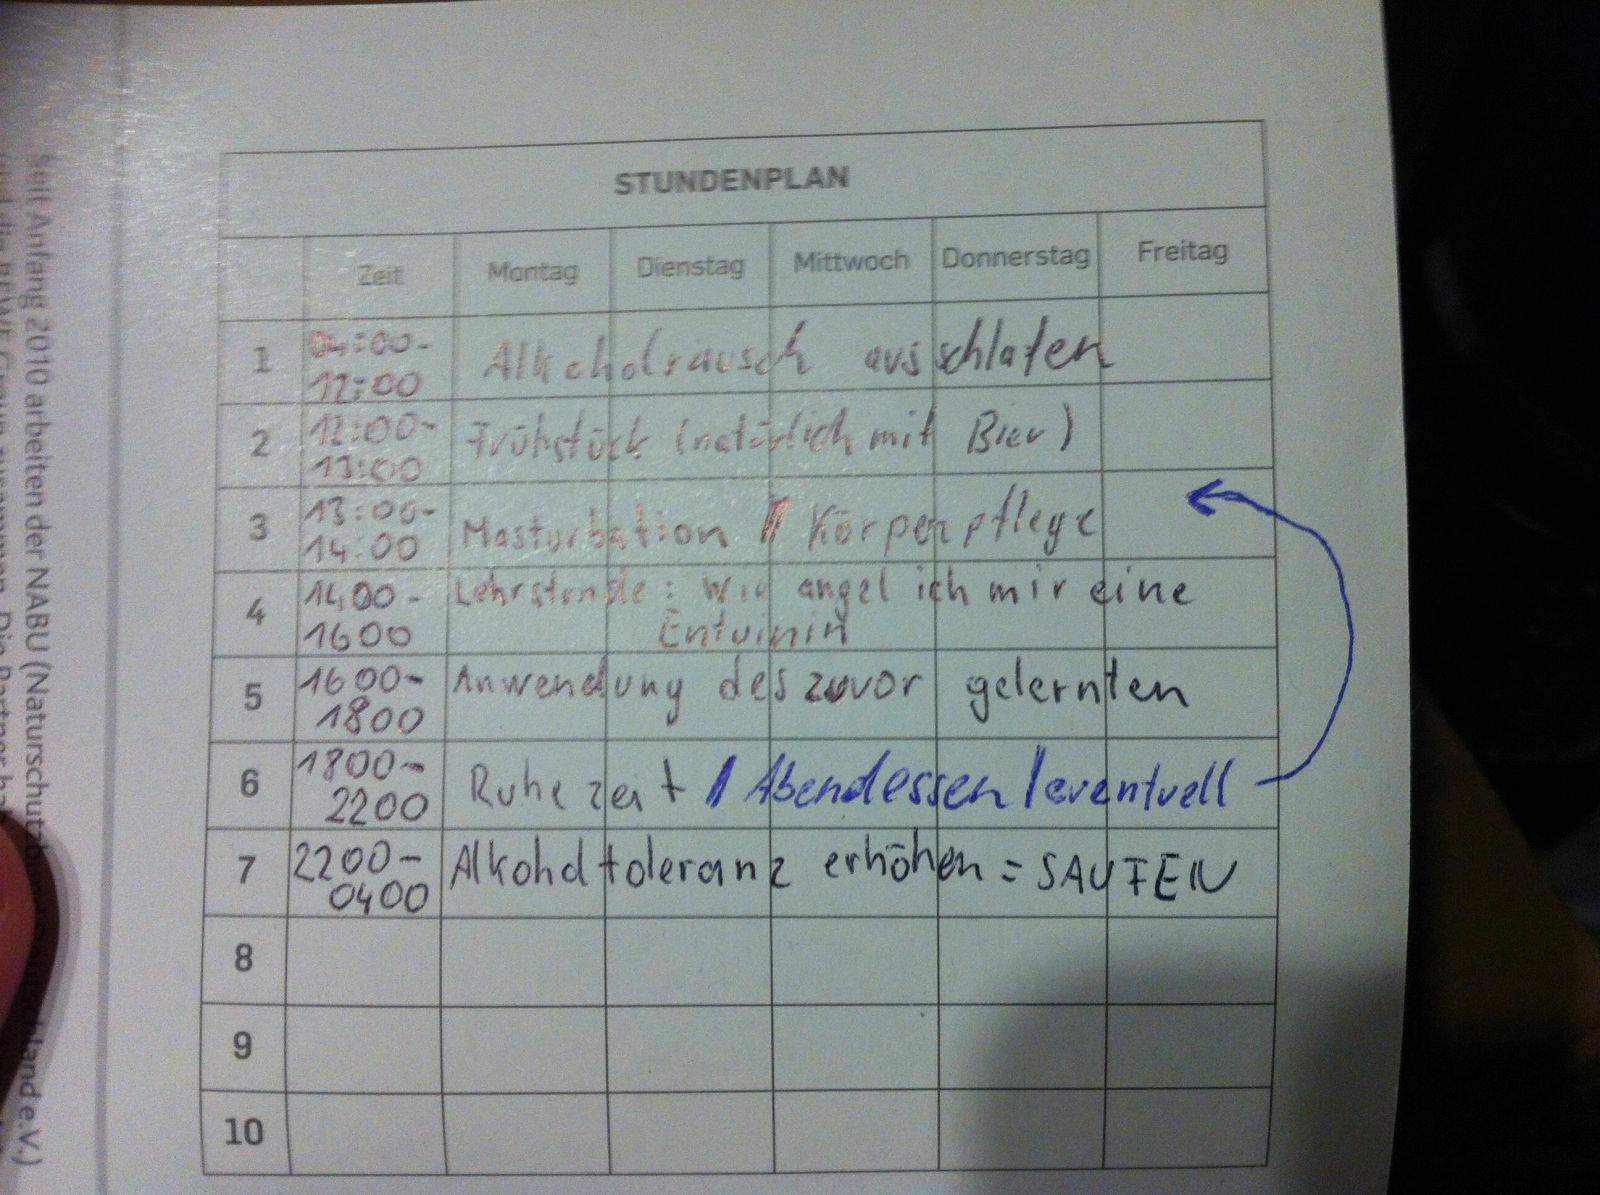 STUNDENPLAN
Zeit Montag Dienstag Mittwoch Donnerstag Freitag
1 04:00-12:00 Alkoholrausch ausschlafen
2 12:00-13:00 Frühstück (natürlich mit Bier)
3 13:00-14:00 Masturbation / Körperpflege
4 1400-1600 Lehrstunde: Wie angel ich mir eine
5 1600-1800 Anwendung des zuvor gelernten
6 1800-2200 Ruhezeit / Abendessen / eventuell
7 2200-0400 Alkoholtoleranz erhöhen = SAUFEN
8
9
10
Seit Anfang 2010 arbeiten der NABU (Naturschutzbund